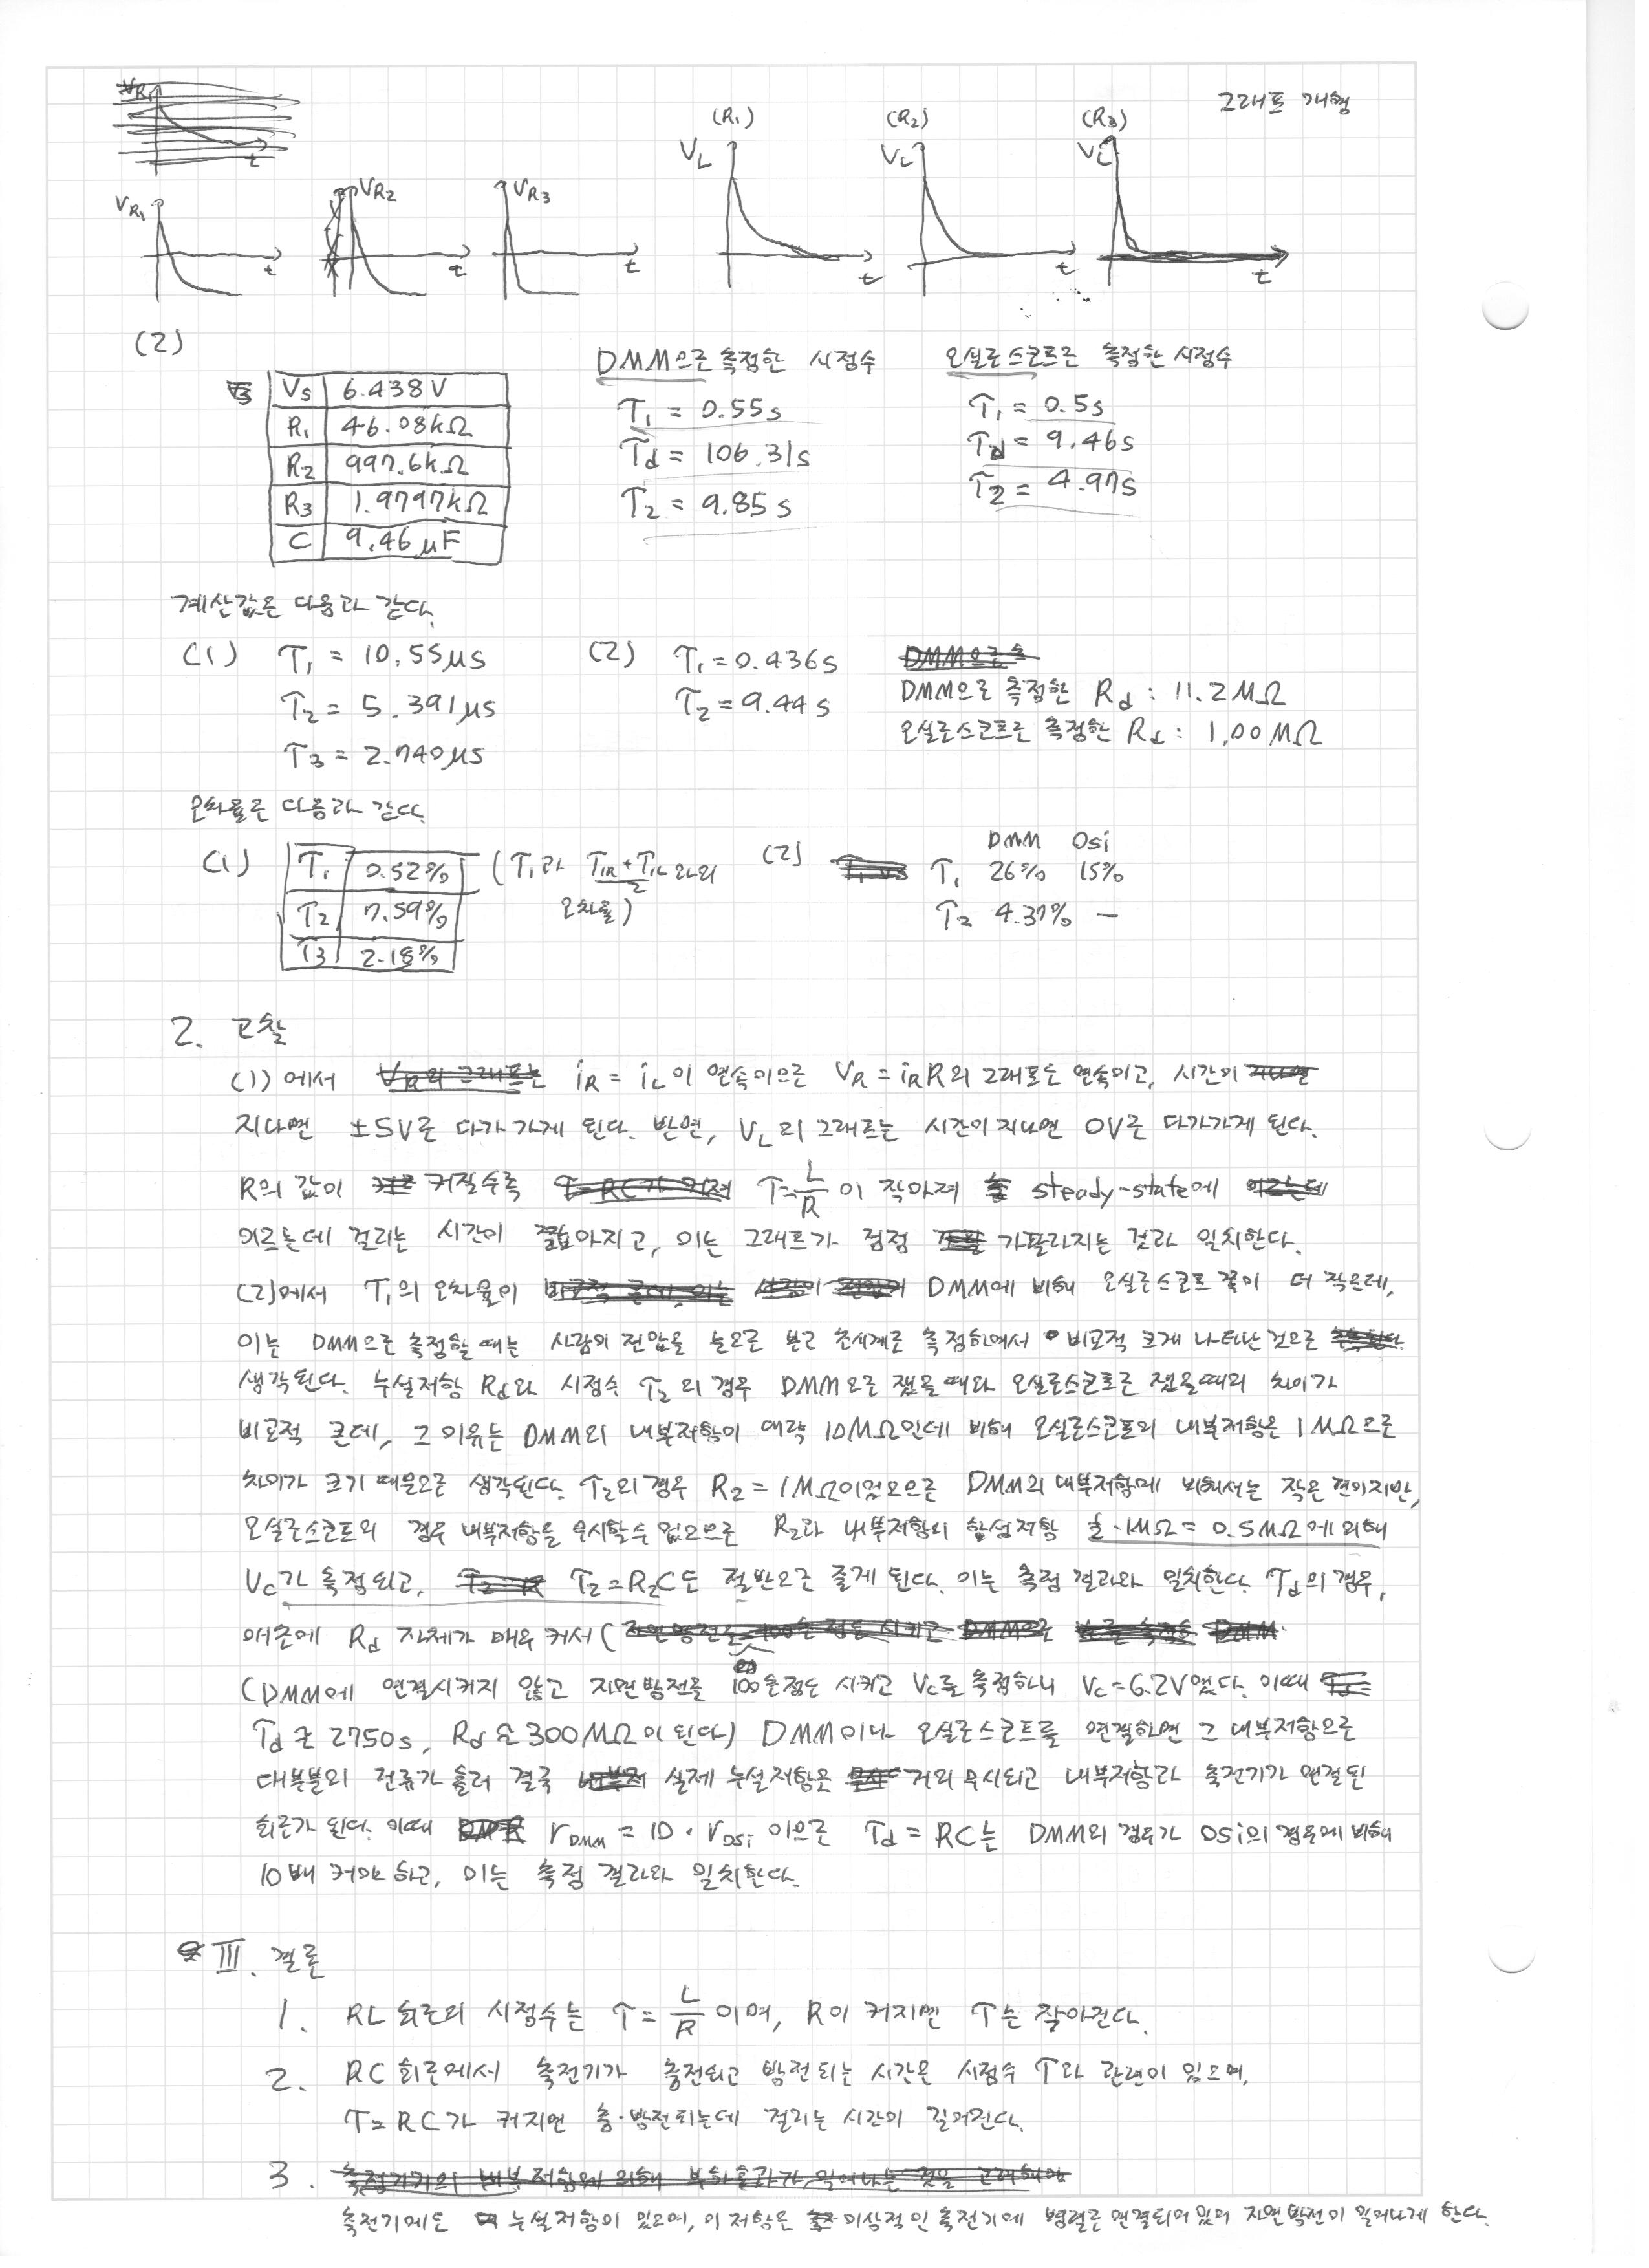 그래프 개형
(R₁) (R₂) (R₃)
V_L V_L V_L
V_R₁ V_R₂ V_R₃
t t t t t t
(2)
DMM으로 측정한 시정수 오실로스코프로 측정한 시정수
Vs 6.438V
R₁ 46.08kΩ
R₂ 997.6kΩ
R₃ 1.9797kΩ
C 9.46μF
τ₁ = 0.55s
τd = 106.31s
τ₂ = 9.85s
τ₁ = 0.5s
τd = 9.46s
τ₂ = 4.97s
계산값은 다음과 같다.
(1) τ₁ = 10.55μs
τ₂ = 5.391μs
τ₃ = 2.740μs
(2) τ₁=0.436s
τ₂=9.44s
DMM으로 측정한 Rd : 11.2MΩ
오실로스코프로 측정한 Rd : 1.00MΩ
오차율은 다음과 같다.
(1) τ₁ 0.52% (τ₁과 (τ₁R+τ₁L)/2 와의 오차율)
τ₂ 7.59%
τ₃ 2.18%
(2) DMM Osi
τ₁ 26% 15%
τ₂ 4.37% —
2. 고찰
(1)에서 iR = iL이 연속이므로 VR = iR R의 그래프도 연속이고, 시간이
지나면 ±5V로 다가가게 된다. 반면, VL의 그래프는 시간이 지나면 0V로 다가가게 된다.
R의 값이 커질수록 τ=L/R이 작아져 steady-state에
이르는데 걸리는 시간이 짧아지고, 이는 그래프가 점점 가팔라지는 것과 일치한다.
(2)에서 τ₁의 오차율이 DMM에 비해 오실로스코프 쪽이 더 작은데,
이는 DMM으로 측정할 때는 사람이 전압을 눈으로 보고 초시계로 측정하여서 비교적 크게 나타난 것으로
생각된다. 누설저항 Rd와 시정수 τ₂의 경우 DMM으로 쟀을 때와 오실로스코프로 쟀을때의 차이가
비교적 큰데, 그 이유는 DMM의 내부저항이 대략 10MΩ인데 비해 오실로스코프의 내부저항은 1MΩ으로
차이가 크기 때문으로 생각된다. τ₂의 경우 R₂=1MΩ이었으므로 DMM의 내부저항에 비해서는 작은 편이지만,
오실로스코프의 경우 내부저항을 무시할 수 없으므로 R₂과 내부저항의 합성저항 ½·1MΩ=0.5MΩ에 의해
Vc가 측정되고, τ₂=R₂C도 절반으로 줄게 된다. 이는 측정 결과와 일치한다. τd의 경우,
애초에 Rd 자체가 매우 커서
(DMM에 연결시키지 않고 자연방전을 100초정도 시키고 Vc를 측정하니 Vc=6.2V였다. 이때
τd≒2750s, Rd≃300MΩ이 된다) DMM이나 오실로스코프를 연결하면 그 내부저항으로
대부분의 전류가 흘러 결국 실제 누설저항은 거의 무시되고 내부저항과 축전기가 연결된
회로가 된다. 이때 r_DMM = 10·r_osi 이므로 τd=RC는 DMM의 경우가 osi의 경우에 비해
10배 커야 하고, 이는 측정 결과와 일치한다.
III. 결론
1. RL 회로의 시정수는 τ=L/R이며, R이 커지면 τ는 작아진다.
2. RC 회로에서 축전기가 충전되고 방전되는 시간은 시정수 τ와 관련이 있으며,
τ=RC가 커지면 충·방전되는데 걸리는 시간이 길어진다.
3.
축전기에도 누설저항이 있으며, 이 저항은 이상적인 축전기에 병렬로 연결되어 있어 자연방전이 일어나게 한다.